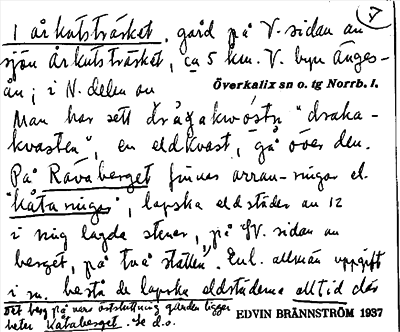 1 årkutsträsket, gård på V. sidan av 7
sjön årkutsträsket, ca 5 km. V. byn Änges-
ån; i N. delen av Överkalix sn o. tg Norrb. l.
Man har sett drågakwóstn "draka-
kvasten", en eldkvast, gå över den.
På Råvaberget finnes arran-ningar el.
"kåtaningar", lapska eldstäder av 12
i ring lagda stenar, på SV. sidan av
berget, på två ställen. Enl. allmän uppgift
i sn. bestå de lapska eldstäderna alltid där
det berg på vars östsluttning gården ligger
heter Kataberget. Se d.o.
EDVIN BRÄNNSTRÖM 1937